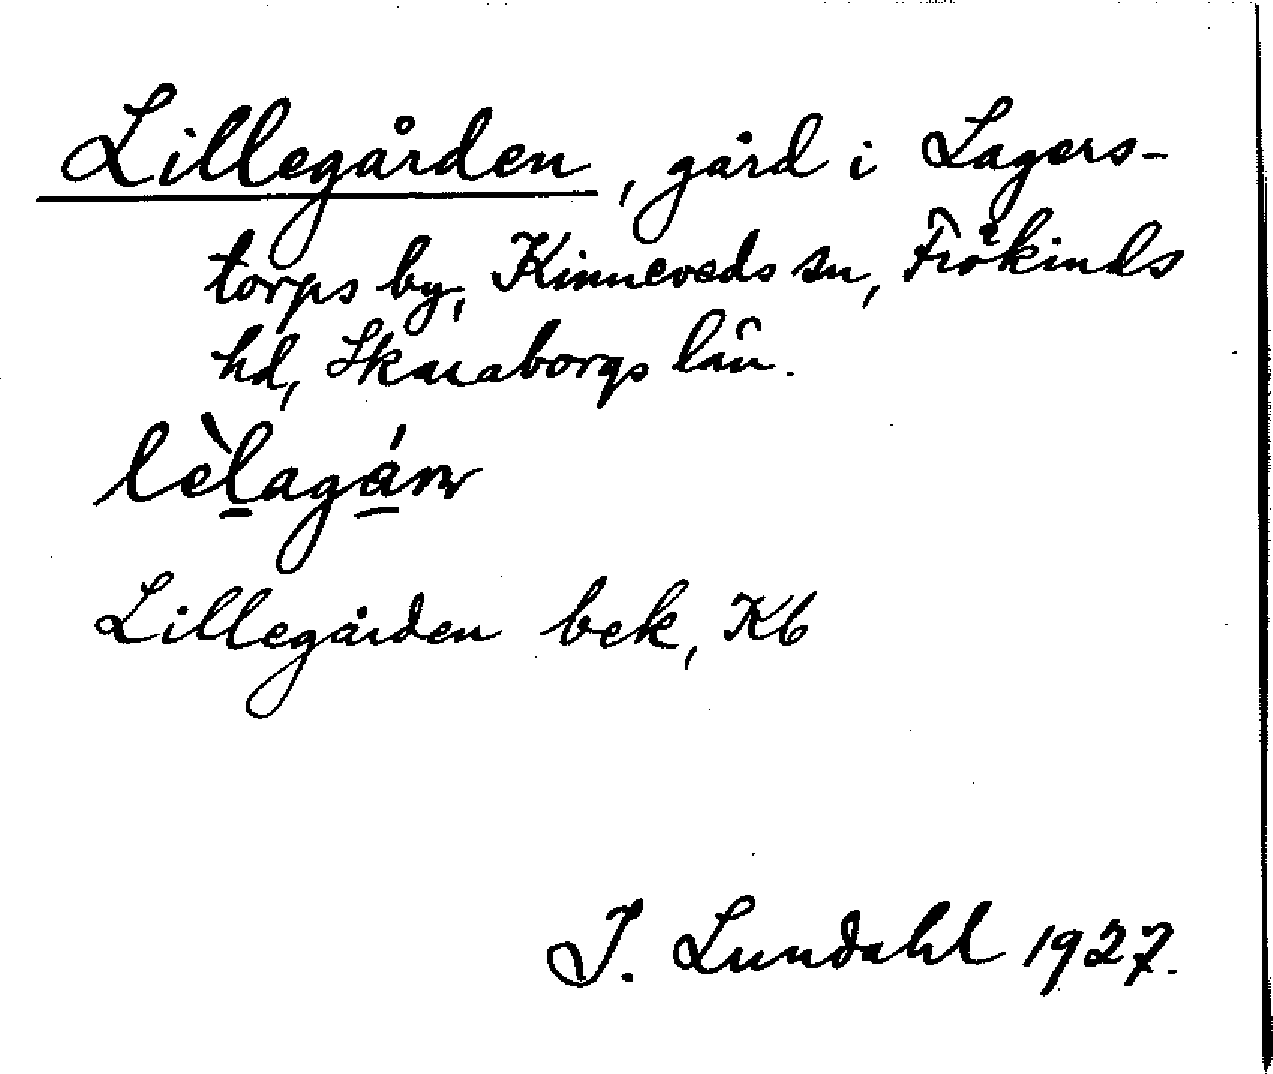 Lillegården, gård i Lagers-
torps by, Kinneveds sn, Frökinds
hd, Skaraborgs län.
lèl̠agá̠rn
Lillegården bek, Kb
J. Lundahl 1927.